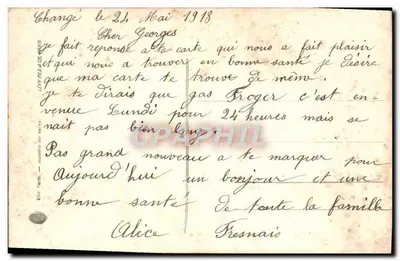 Changé le 24 Mai 1918
Cher Georges
je fait reponse a te carte qui nous a fait plaisir
et qui nous a trouver en bonne santé je désire
que ma carte te trouve de même.
je te dirais que gas Froger c'est en-
venue Lundi pour 24 heures mais se
nait pas bien long.
Pas grand nouveau a te marquer pour
Aujourd'hui un bonjour et une
bonne santé de toute la famille
Alice Fresnais
CPAPHIL